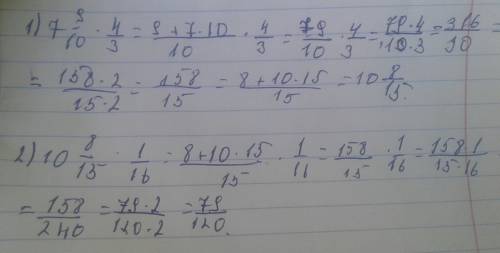 1) 7 9/10 · 4/3 = 9+7·10/10 · 4/3 = 79/10 · 4/3 = 79·4/10·3 = 316/30 =
= 158·2/15·2 = 158/15 = 8+10·15/15 = 10 8/15.
2) 10 8/15 · 1/16 = 8+10·15/15 · 1/11 = 158/15 · 1/16 = 158 1/15·16
= 158/240 = 79·2/120·2 = 79/120.